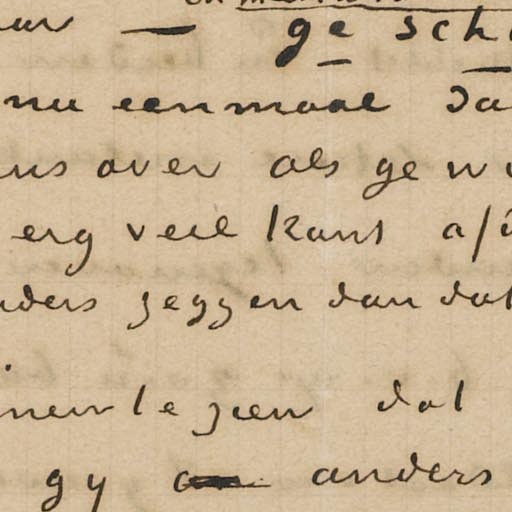 — ge sch
nu eenmaal da
ns over als ge w
erg veel kunt af
nders zeggen dan dat
men te zien dat
gy anders